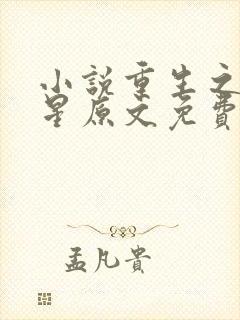 小說重生之
星原文免費
孟凡貴